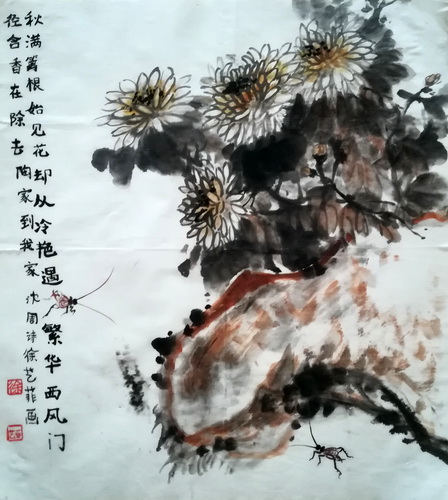 秋满篱根始见花却从冷艳遇繁华西风门
径含香在除去陶家到我家沈周诗徐艺菲画
徐